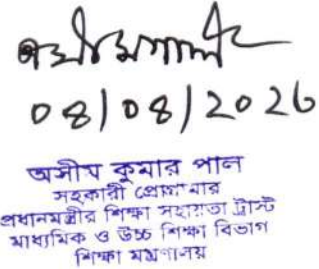 ০৪/০৪/২০২৬
অসীম কুমার পাল
সহকারী প্রোগ্রামার
প্রধানমন্ত্রীর শিক্ষা সহায়তা ট্রাস্ট
মাধ্যমিক ও উচ্চ শিক্ষা বিভাগ
শিক্ষা মন্ত্রণালয়